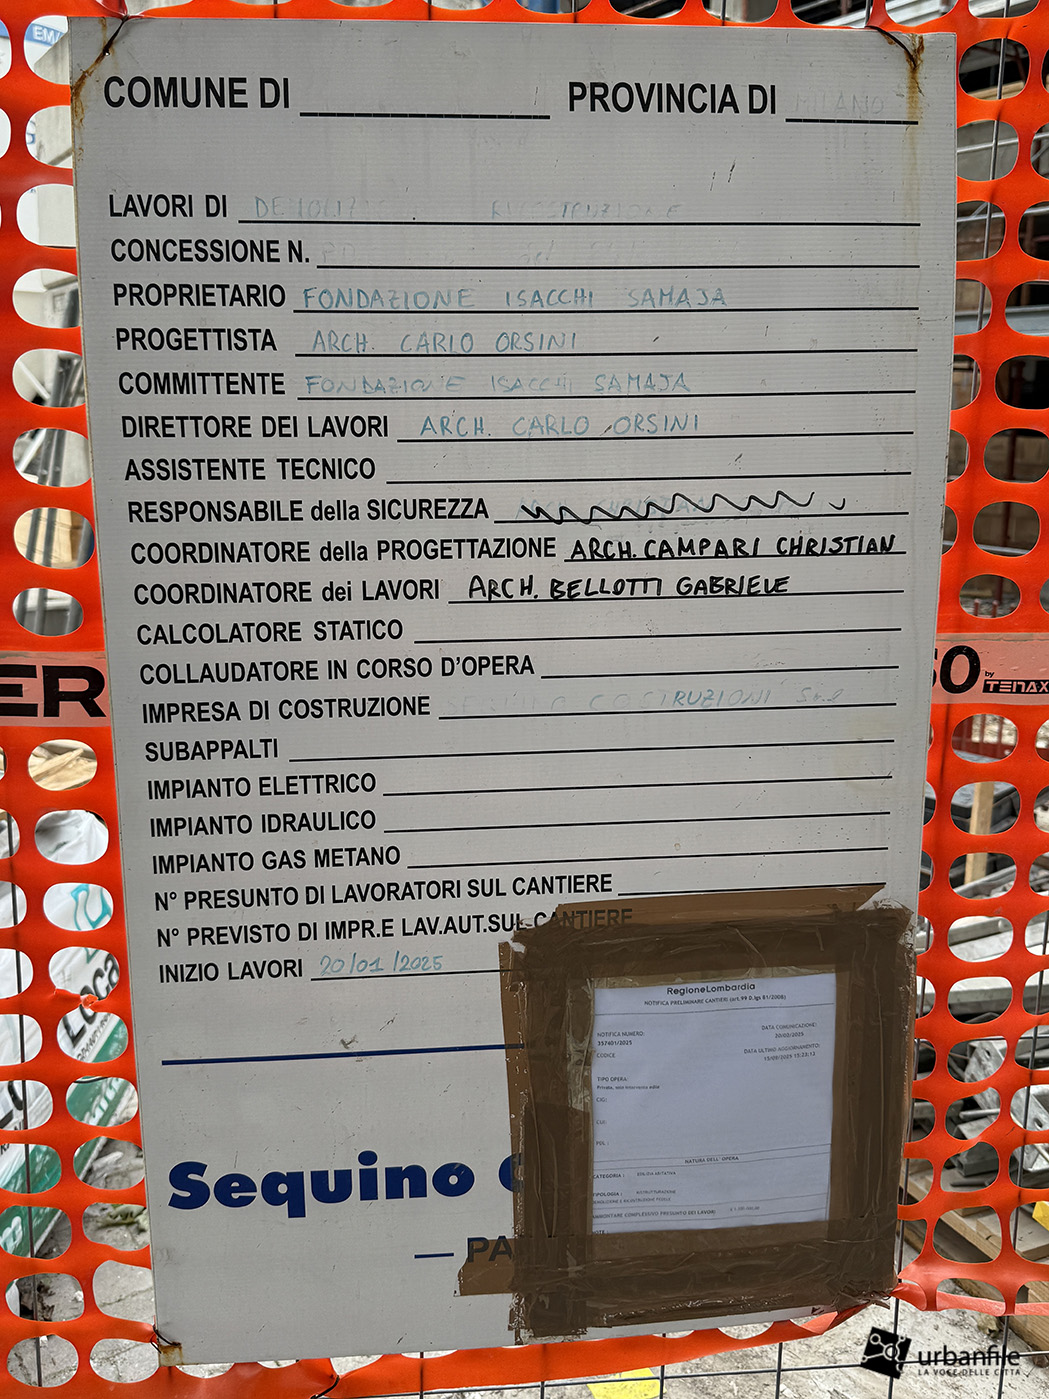 COMUNE DI PROVINCIA DI MILANO
LAVORI DI
CONCESSIONE N.
PROPRIETARIO FONDAZIONE ISACCHI SAMAJA
PROGETTISTA ARCH. CARLO ORSINI
COMMITTENTE FONDAZIONE ISACCHI SAMAJA
DIRETTORE DEI LAVORI ARCH. CARLO ORSINI
ASSISTENTE TECNICO
RESPONSABILE della SICUREZZA
COORDINATORE della PROGETTAZIONE ARCH. CAMPARI CHRISTIAN
COORDINATORE dei LAVORI ARCH. BELLOTTI GABRIELE
CALCOLATORE STATICO
COLLAUDATORE IN CORSO D'OPERA
IMPRESA DI COSTRUZIONE COSTRUZIONI
SUBAPPALTI
IMPIANTO ELETTRICO
IMPIANTO IDRAULICO
IMPIANTO GAS METANO
N° PRESUNTO DI LAVORATORI SUL CANTIERE
N° PREVISTO DI IMPR.E LAV.AUT.SUL CANTIERE
INIZIO LAVORI 20/01/2025
RegioneLombardia
NOTIFICA PRELIMINARE CANTIERI (art. 99 D.lgs 81/2008)
NOTIFICA NUMERO: DATA COMUNICAZIONE:
357401/2025 20/03/2025
CODICE DATA ULTIMO AGGIORNAMENTO:
TIPO OPERA:
CIG:
CUI:
NATURA DELL'OPERA
CATEGORIA : EDILIZIA ABITATIVA
TIPOLOGIA : RISTRUTTURAZIONE
AMMONTARE COMPLESSIVO PRESUNTO DEI LAVORI
NOTE :
Sequino
ER
50 by TENAX
urbanfile
LA VOCE DELLE CITTÀ